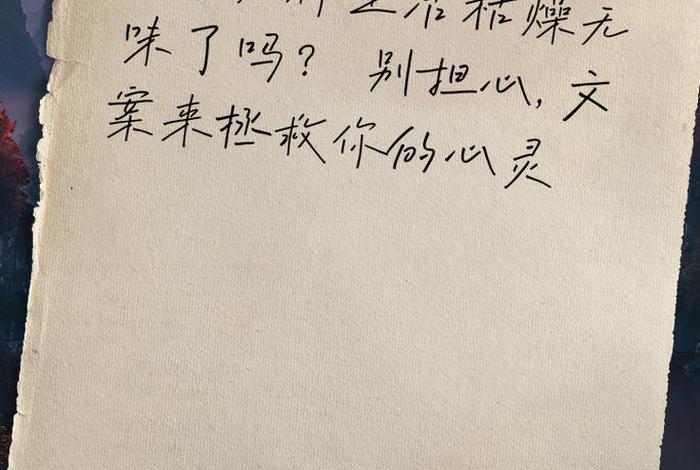 枯燥无
味了吗？ 别担心，文
案来拯救你的心灵